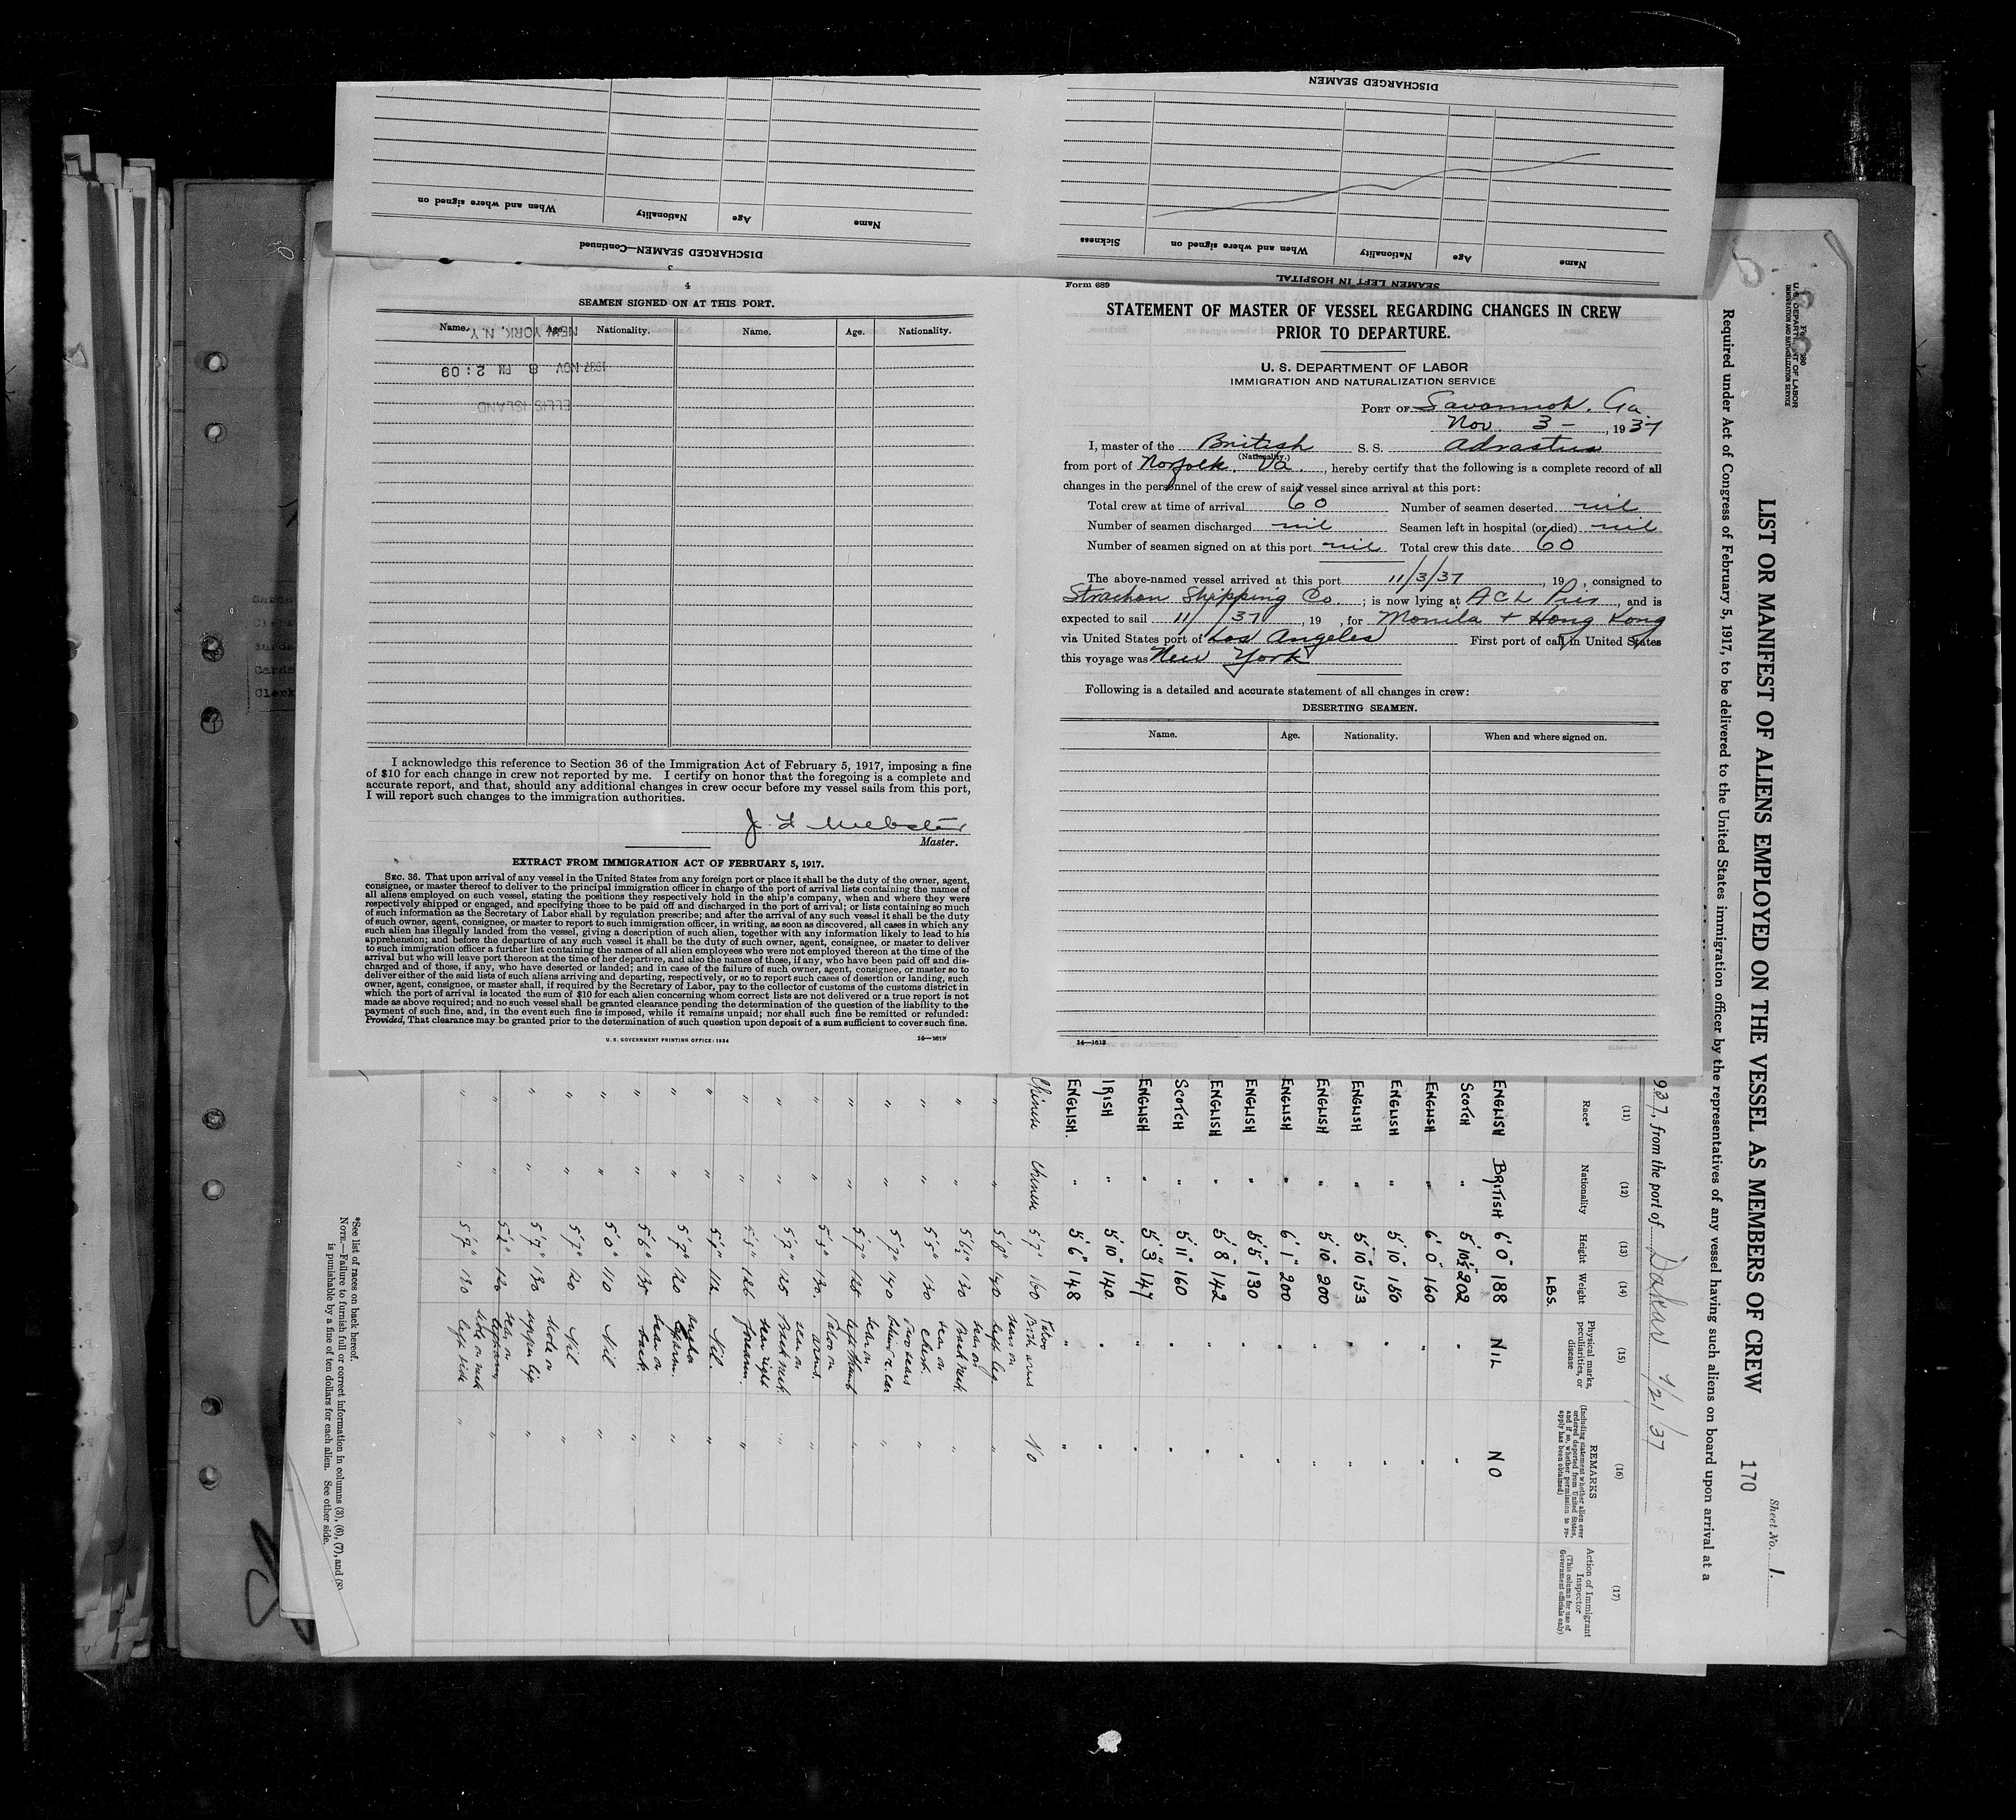 DISCHARGED SEAMEN
When and where signed on
Nationality
Age
Name
DISCHARGED SEAMEN—Continued
3
Sickness
When and where signed on
Nationality
Age
Name
SEAMEN LEFT IN HOSPITAL
4
SEAMEN SIGNED ON AT THIS PORT.
Name. Age. Nationality. Name. Age. Nationality.
NEW YORK, N.Y.
1937 NOV 8 PM 2:09
ELLIS ISLAND
I acknowledge this reference to Section 36 of the Immigration Act of February 5, 1917, imposing a fine
of $10 for each change in crew not reported by me. I certify on honor that the foregoing is a complete and
accurate report, and that, should any additional changes in crew occur before my vessel sails from this port,
I will report such changes to the immigration authorities.
Webster
Master.
EXTRACT FROM IMMIGRATION ACT OF FEBRUARY 5, 1917.
SEC. 36. That upon arrival of any vessel in the United States from any foreign port or place it shall be the duty of the owner, agent,
consignee, or master thereof to deliver to the principal immigration officer in charge of the port of arrival lists containing the names of
all aliens employed on such vessel, stating the positions they respectively hold in the ship's company, when and where they were
respectively shipped or engaged, and specifying those to be paid off and discharged in the port of arrival; or lists containing so much
of such information as the Secretary of Labor shall by regulation prescribe; and after the arrival of any such vessel it shall be the duty
of such owner, agent, consignee, or master to report to such immigration officer, in writing, as soon as discovered, all cases in which any
such alien has illegally landed from the vessel, giving a description of such alien, together with any information likely to lead to his
apprehension; and before the departure of any such vessel it shall be the duty of such owner, agent, consignee, or master to deliver
to such immigration officer a further list containing the names of all alien employees who were not employed thereon at the time of the
arrival but who will leave port thereon at the time of her departure, and also the names of those, if any, who have been paid off and dis-
charged and of those, if any, who have deserted or landed; and in case of the failure of such owner, agent, consignee, or master so to
deliver either of the said lists of such aliens arriving and departing, respectively, or so to report such cases of desertion or landing, such
owner, agent, consignee, or master shall, if required by the Secretary of Labor, pay to the collector of customs of the customs district in
which the port of arrival is located the sum of $10 for each alien concerning whom correct lists are not delivered or a true report is not
made as above required; and no such vessel shall be granted clearance pending the determination of the question of the liability to the
payment of such fine, and, in the event such fine is imposed, while it remains unpaid; nor shall such fine be remitted or refunded:
Provided, That clearance may be granted prior to the determination of such question upon deposit of a sum sufficient to cover such fine.
U. S. GOVERNMENT PRINTING OFFICE: 1934 14—1613
Form 689
STATEMENT OF MASTER OF VESSEL REGARDING CHANGES IN CREW
PRIOR TO DEPARTURE.
U. S. DEPARTMENT OF LABOR
IMMIGRATION AND NATURALIZATION SERVICE
PORT OF Savannah, Ga
Nov. 3 – , 1937
I, master of the British S. S. Adrastus
(Nationality.)
from port of Norfolk, Va , hereby certify that the following is a complete record of all
changes in the personnel of the crew of said vessel since arrival at this port:
Total crew at time of arrival 60 Number of seamen deserted nil
Number of seamen discharged nil Seamen left in hospital (or died) nil
Number of seamen signed on at this port nil Total crew this date 60
The above-named vessel arrived at this port 11/3/37 , 19 , consigned to
Strachan Shipping Co. ; is now lying at ACL Pier , and is
expected to sail 11/ /37 , 19 , for Manila + Hong Kong
via United States port of Los Angeles First port of call in United States
this voyage was New York
Following is a detailed and accurate statement of all changes in crew:
DESERTING SEAMEN.
Name. Age. Nationality. When and where signed on.
14—1613
Form 680
U. S. DEPARTMENT OF LABOR
IMMIGRATION AND NATURALIZATION SERVICE
Sheet No. 1.
170
LIST OR MANIFEST OF ALIENS EMPLOYED ON THE VESSEL AS MEMBERS OF CREW
Required under Act of Congress of February 5, 1917, to be delivered to the United States immigration officer by the representatives of any vessel having such aliens on board upon arrival at a
937, from the port of Dakar 9/21/37
(11) (12) (13) (14) (15) (16) (17)
Race* Nationality Height Weight Physical marks, peculiarities, or disease REMARKS (Including statement whether alien ever ordered deported from United States, and if so, whether permission to re-apply has been obtained) Action of Immigrant Inspector (This column for use of Government officials only)
LBS.
ENGLISH BRITISH 6' 0" 188 NIL NO
SCOTCH " 5' 10½" 202 " "
ENGLISH " 6' 0" 160 " "
ENGLISH " 5' 10" 150 " "
ENGLISH " 5' 10" 153 " "
ENGLISH " 5' 10" 200 " "
ENGLISH " 6' 1" 200 " "
ENGLISH " 5' 5" 130 " "
ENGLISH " 5' 8" 142 " "
SCOTCH " 5' 11" 160 " "
ENGLISH " 5' 3" 147 " "
IRISH " 5' 10" 140 " "
ENGLISH. " 5' 6" 148 " "
Chinese Chinese 5' 7" 160 Tatoo Both arms No
" " 5' 8" 140 scars on left leg. "
" " 5' 6½" 130 scar on Back neck. "
" " 5' 5" 130 scar on chest. "
" " 5' 7" 140 Two scars behind r. ear "
" " 5' 7" 125 scar on left thumb "
" " 5' 5" 130. Tatoo on arms. "
" " 5' 7" 125 scar on Back neck. "
" " 5' 5" 126 scar right forearm. "
" " 112 Nil. "
" " 5' 7" 120 "
" " 5' 6" 135 scar on back. "
" " 5' 0" 110 Nil "
" " 5' 7" 120 Nil "
" " 5' 7" 130 mole on upper lip "
" " 120 scar on "
" " 5' 7" 130 mole on neck left side "
*See list of races on back hereof.
NOTE.—Failure to furnish full or correct information in columns (3), (6), (7), and (8)
is punishable by a fine of ten dollars for each alien. See other side.